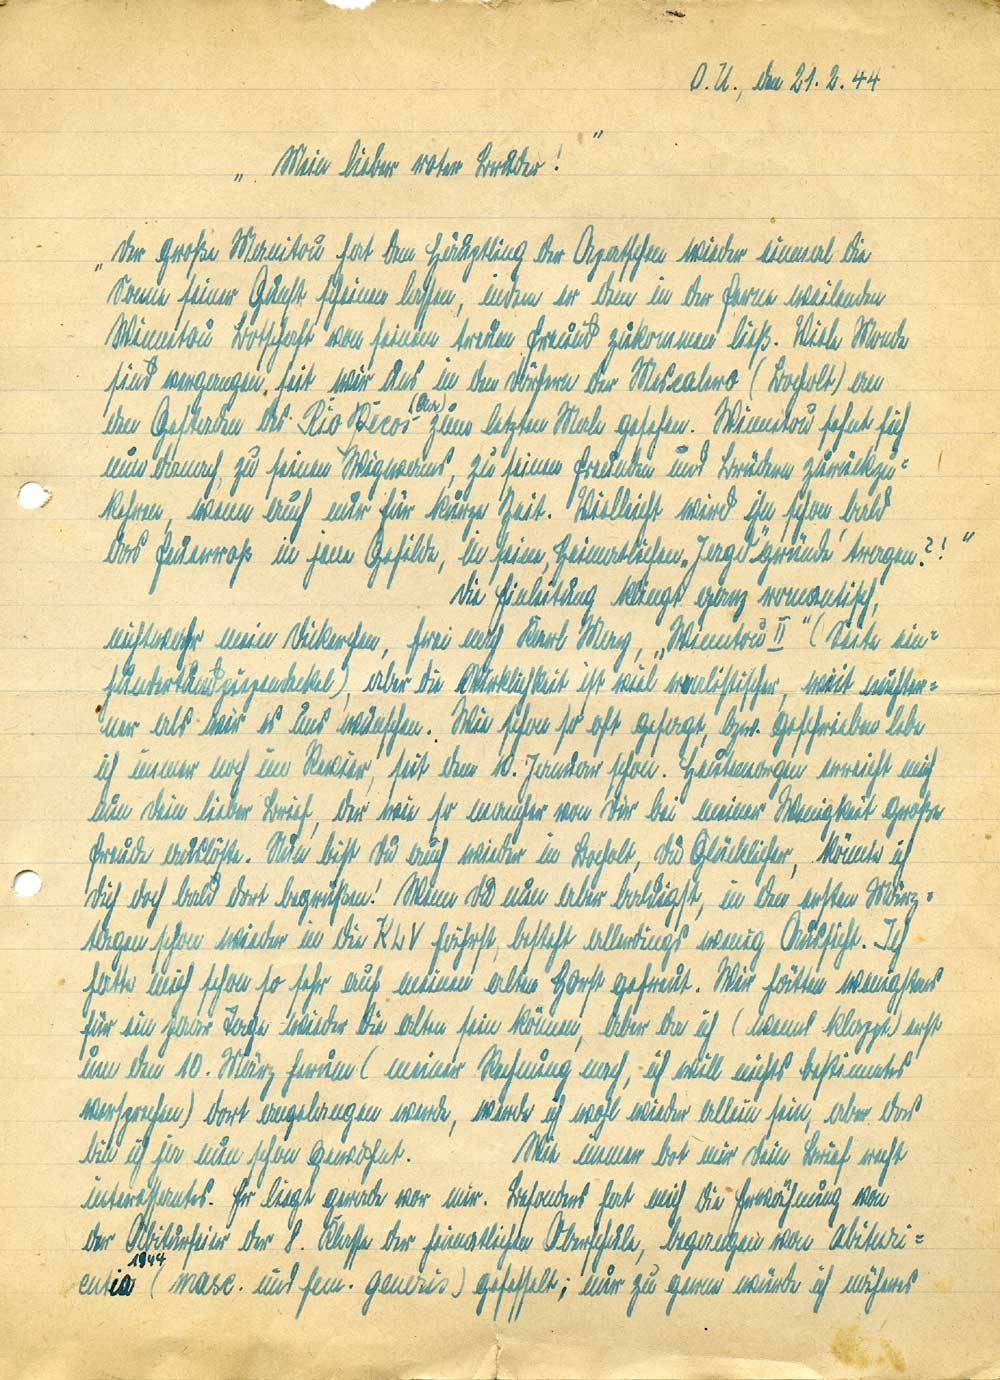 O.U., den 21.2.44
„Mein lieber roter Bruder!"
„Der große Manitou hat dem Häuptling der Apatschen wieder einmal die
Sonne seiner Gunst scheinen lassen, indem er dem in der Ferne weilenden
Winnitou Botschaft von seinem treuen Freund zukommen ließ. Viele Monde
sind vergangen, seit wir uns in den Dörfern der Mescaleros (Bocholt) an
den Gestaden des Rio Pecos (Aa) zum letzten Male gesehen. Winnitou sehnt sich
nun danach, zu seinen Wigwams, zu seinen Freunden und Brüdern zurückzu=
kehren, wenn auch nur für kurze Zeit. Vielleicht wird ihn schon bald
das Feuerroß in jene Gefilde, in seine, heimatlichen „Jagd"gründe tragen?!"
Die Einleitung klingt ganz romantisch,
nichtwahr mein Dickerchen, frei nach Karl May, „Winnitou II" (Seite ein=
hundertundziegendeckel), aber die Wirklichkeit ist viel realistischer, weit nüchter=
ner als wir es uns wünschen. Wie schon so oft gesagt, bzw. geschrieben lebe
ich immer noch im Revier, seit dem 10. Januar schon. Heutemorgen erreicht mich
nun Dein lieber Brief, der wie so mancher von Dir bei meiner Wenigkeit große
Freude auslöste. Nun bist Du auch wieder in Bocholt, Du Glücklicher, könnte ich
Dich doch bald dort begrüßen! Wenn Du nun aber baldigst, in den ersten März=
tagen schon wieder in die KLV fährst, besteht allerdings wenig Aussicht. Ich
hatte mich schon so sehr auf meinen alten Horst gefreut. Wir hätten wenigstens
für ein paar Tage wieder die alten sein können, aber da ich (wenns klappt) erst
um den 10. März herum (meiner Rechnung nach, ich will nichts bestimmtes
versprechen) dort angelangen werde, werde ich wohl wieder allein sein, aber das
bin ich ja nun schon gewöhnt. Wie immer bot mir Dein Brief recht
interessantes. Er liegt gerade vor mir. Besonders hat mich die Erwähnung von
der Abiturfeier der 8. Klasse der heimatlichen Oberschule, begangen von Abituri=
entia 1944 (masc. und fem. generis) gefesselt; nur zu gerne würde ich näheres